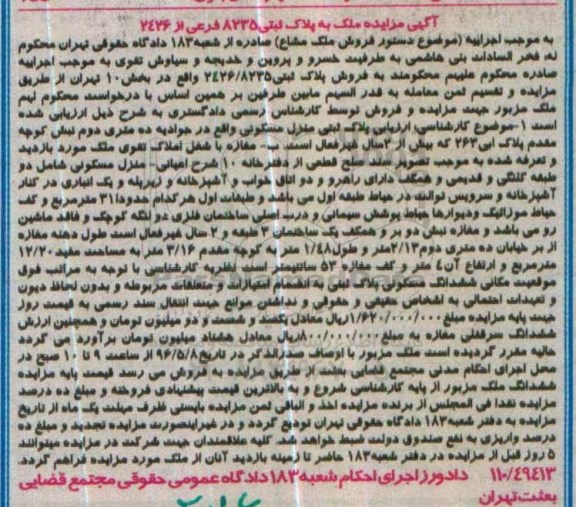 آگهی مزایده ملک به پلاک ثبتی ۸۲۳۵ فرعی از ۲۴۲۶
به موجب اجراییه (موضوع دستور فروش ملک مشاع) صادره از شعبه ۱۸۳ دادگاه حقوقی تهران محکوم
له، فخر السادات بنی هاشمی به طرفیت خسرو و پروین و خدیجه و سیاوش تقوی به موجب اجراییه
صادره محکوم علیهم محکومند به فروش پلاک ثبتی ۲۴۲۶/۸۲۳۵ واقع در بخش ۱۰ تهران از طریق
مزایده و تقسیم ثمن معامله به قدر السهم مابین طرفین بر همین اساس با درخواست محکوم لهم
ملک مزبور جهت مزایده و فروش توسط کارشناس رسمی دادگستری به شرح ذیل ارزیابی شده
است ۱-موضوع کارشناسی، ارزیابی پلاک ثبتی منزل مسکونی واقع در جوادیه ده متری دوم نبش کوچه
مقدم پلاک ابی ۲۶۳ که بیش از ۲سال غیرفعال است. ب- مغازه با شغل املاک تقوی ملک مورد بازدید
و تعرفه شده به موجب تصویر سند صلح قطعی از دفترخانه ۱۰ شرح اعیانی- منزل مسکونی شامل دو
طبقه کلنگی و قدیمی و همکف دارای راهرو و دو اتاق خواب و آشپزخانه و زیرپله و یک انباری در کنار
آشپزخانه و سرویس توالت در حیاط طبقه اول می باشد و طبقات اول هرکدام حدودا ۳۱ مترمربع و کف
حیاط موزائیک ودیوارها حیاط پوشش سیمانی و درب اصلی ساختمان فلزی دو لنگه کوچک و فاقد ماشین
رو می باشد و مغازه نبش دو بر و همکف یک ساختمان ۳ طبقه و ۲ سال غیرفعال است طول دهنه مغازه
از بر خیابان ده متری دوم ۲/۱۳متر و طول ۱/۴۸ متر به کوچه مقدم ۳/۱۶ متر به مساحت مفید ۱۲/۲۰
مترمربع و ارتفاع آن ۴ متر و کف مغازه ۵۳ سانتیمتر است نظریه کارشناسی با توجه به مراتب فوق
موقعیت مکانی ششدانگ مسکونی پلاک ثبتی به انضمام امتیازات و متعلقات مربوطه و بدون لحاظ دیون
و تعهدات احتمالی به اشخاص حقیقی و حقوقی و نداشتن موانع جهت انتقال سند رسمی به قیمت روز
جهت پایه مزایده مبلغ ۱/۶۲۰/۰۰۰/۰۰۰ریال معادل یکصد و شصت و دو میلیون تومان و همچنین ارزش
ششدانگ سرقفلی مغازه به مبلغ ۸۰۰/۰۰۰/۰۰۰ریال معادل هشتاد میلیون تومان برآورد می گردد
حالیه مقرر گردیده است ملک مزبور با اوصاف صدرالذکر در تاریخ ۹۶/۵/۸ از ساعت ۹ تا ۱۰ صبح در
محل اجرای احکام مدنی مجتمع قضایی بعثت از طریق مزایده به فروش می رسد قیمت پایه مزایده
ششدانگ ملک مزبور از پایه کارشناسی شروع و به بالاترین قیمت پیشنهادی فروخته و مبلغ ده درصد
مزایده نقدا فی المجلس از برنده مزایده اخذ و الباقی ثمن مزایده بایستی ظرف مهلت یک ماه از تاریخ
مزایده به دفتر شعبه ۱۸۳ دادگاه حقوقی تهران تودیع گردد و در غیراینصورت مزایده تجدید و مبلغ ده
درصد واریزی به نفع صندوق دولت ضبط خواهد شد. کلیه علاقمندان جهت شرکت در مزایده میتوانند
۵ روز قبل از مزایده در دفتر شعبه ۱۸۳ حاضر تا زمینه بازدید آنان از ملک مورد مزایده فراهم گردد.
۱۱۰/۴۹۴۱۳ دادورز اجرای احکام شعبه ۱۸۳ دادگاه عمومی حقوقی مجتمع قضایی
بعثت تهران